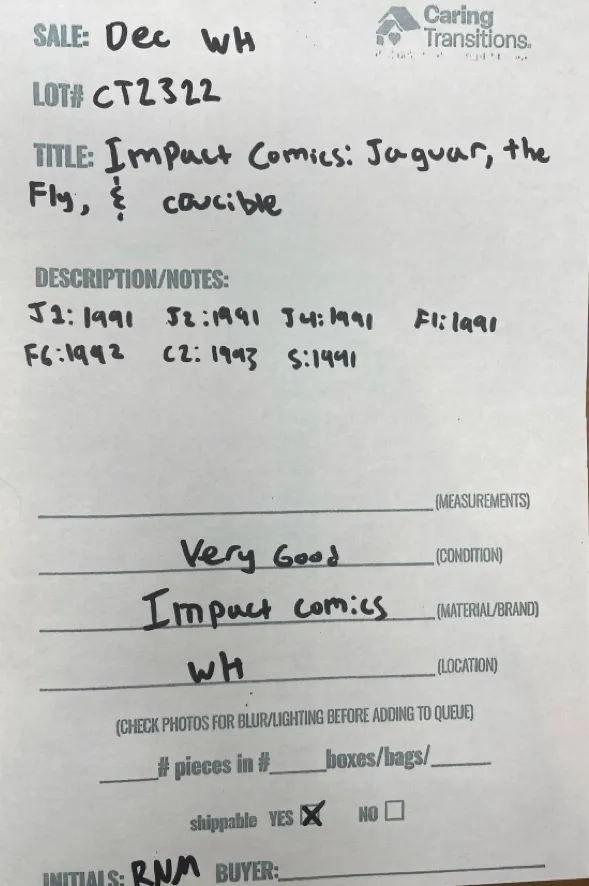 SALE: Dec WH
Caring
Transitions®
LOT# CT2322
TITLE: Impact Comics: Jaguar, the
Fly, & crucible
DESCRIPTION/NOTES:
J1:1991 J2:1991 J4:1991 F1:1991
F6:1992 C2: 1993 S:1991
(MEASUREMENTS)
Very Good (CONDITION)
Impact comics (MATERIAL/BRAND)
WH (LOCATION)
(CHECK PHOTOS FOR BLUR/LIGHTING BEFORE ADDING TO QUEUE)
# pieces in # boxes/bags/
shippable YES X NO
INITIALS: RNM BUYER: